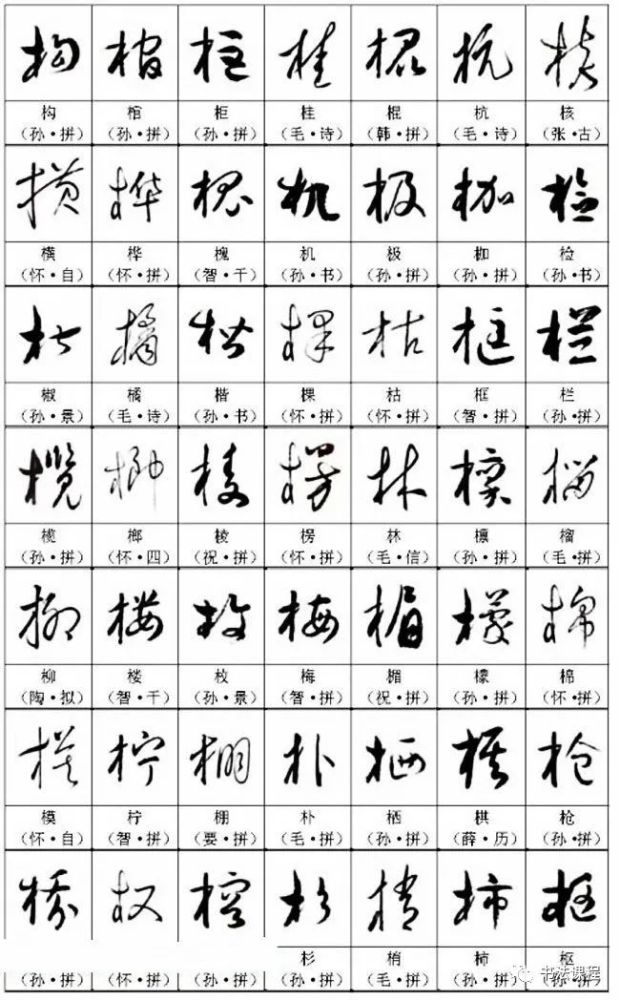 构 棺 柜 桂 棍 杭 核
(孙·拼) (孙·拼) (孙·拼) (毛·诗) (韩·拼) (毛·诗) (张·古)
横 桦 槐 机 极 枷 检
(怀·自) (怀·拼) (智·千) (孙·书) (孙·拼) (孙·拼) (孙·书)
椒 橘 楷 棵 枯 框 栏
(孙·景) (毛·诗) (孙·书) (怀·拼) (怀·拼) (智·拼) (孙·拼)
榄 榔 棱 楞 林 檩 榴
(孙·拼) (怀·四) (祝·拼) (怀·拼) (毛·信) (孙·拼) (毛·拼)
柳 楼 枚 梅 楣 檬 棉
(陶·拟) (智·千) (孙·景) (智·拼) (祝·拼) (孙·拼) (怀·拼)
模 柠 棚 朴 栖 棋 枪
(怀·自) (智·拼) (要·拼) (毛·拼) (孙·拼) (薛·历) (孙·拼)
桥 权 榕 杉 梢 柿 枢
(孙·拼) (怀·拼) (孙·拼) (孙·拼) (毛·拼) (孙·拼) (孙·拼)
书法课程